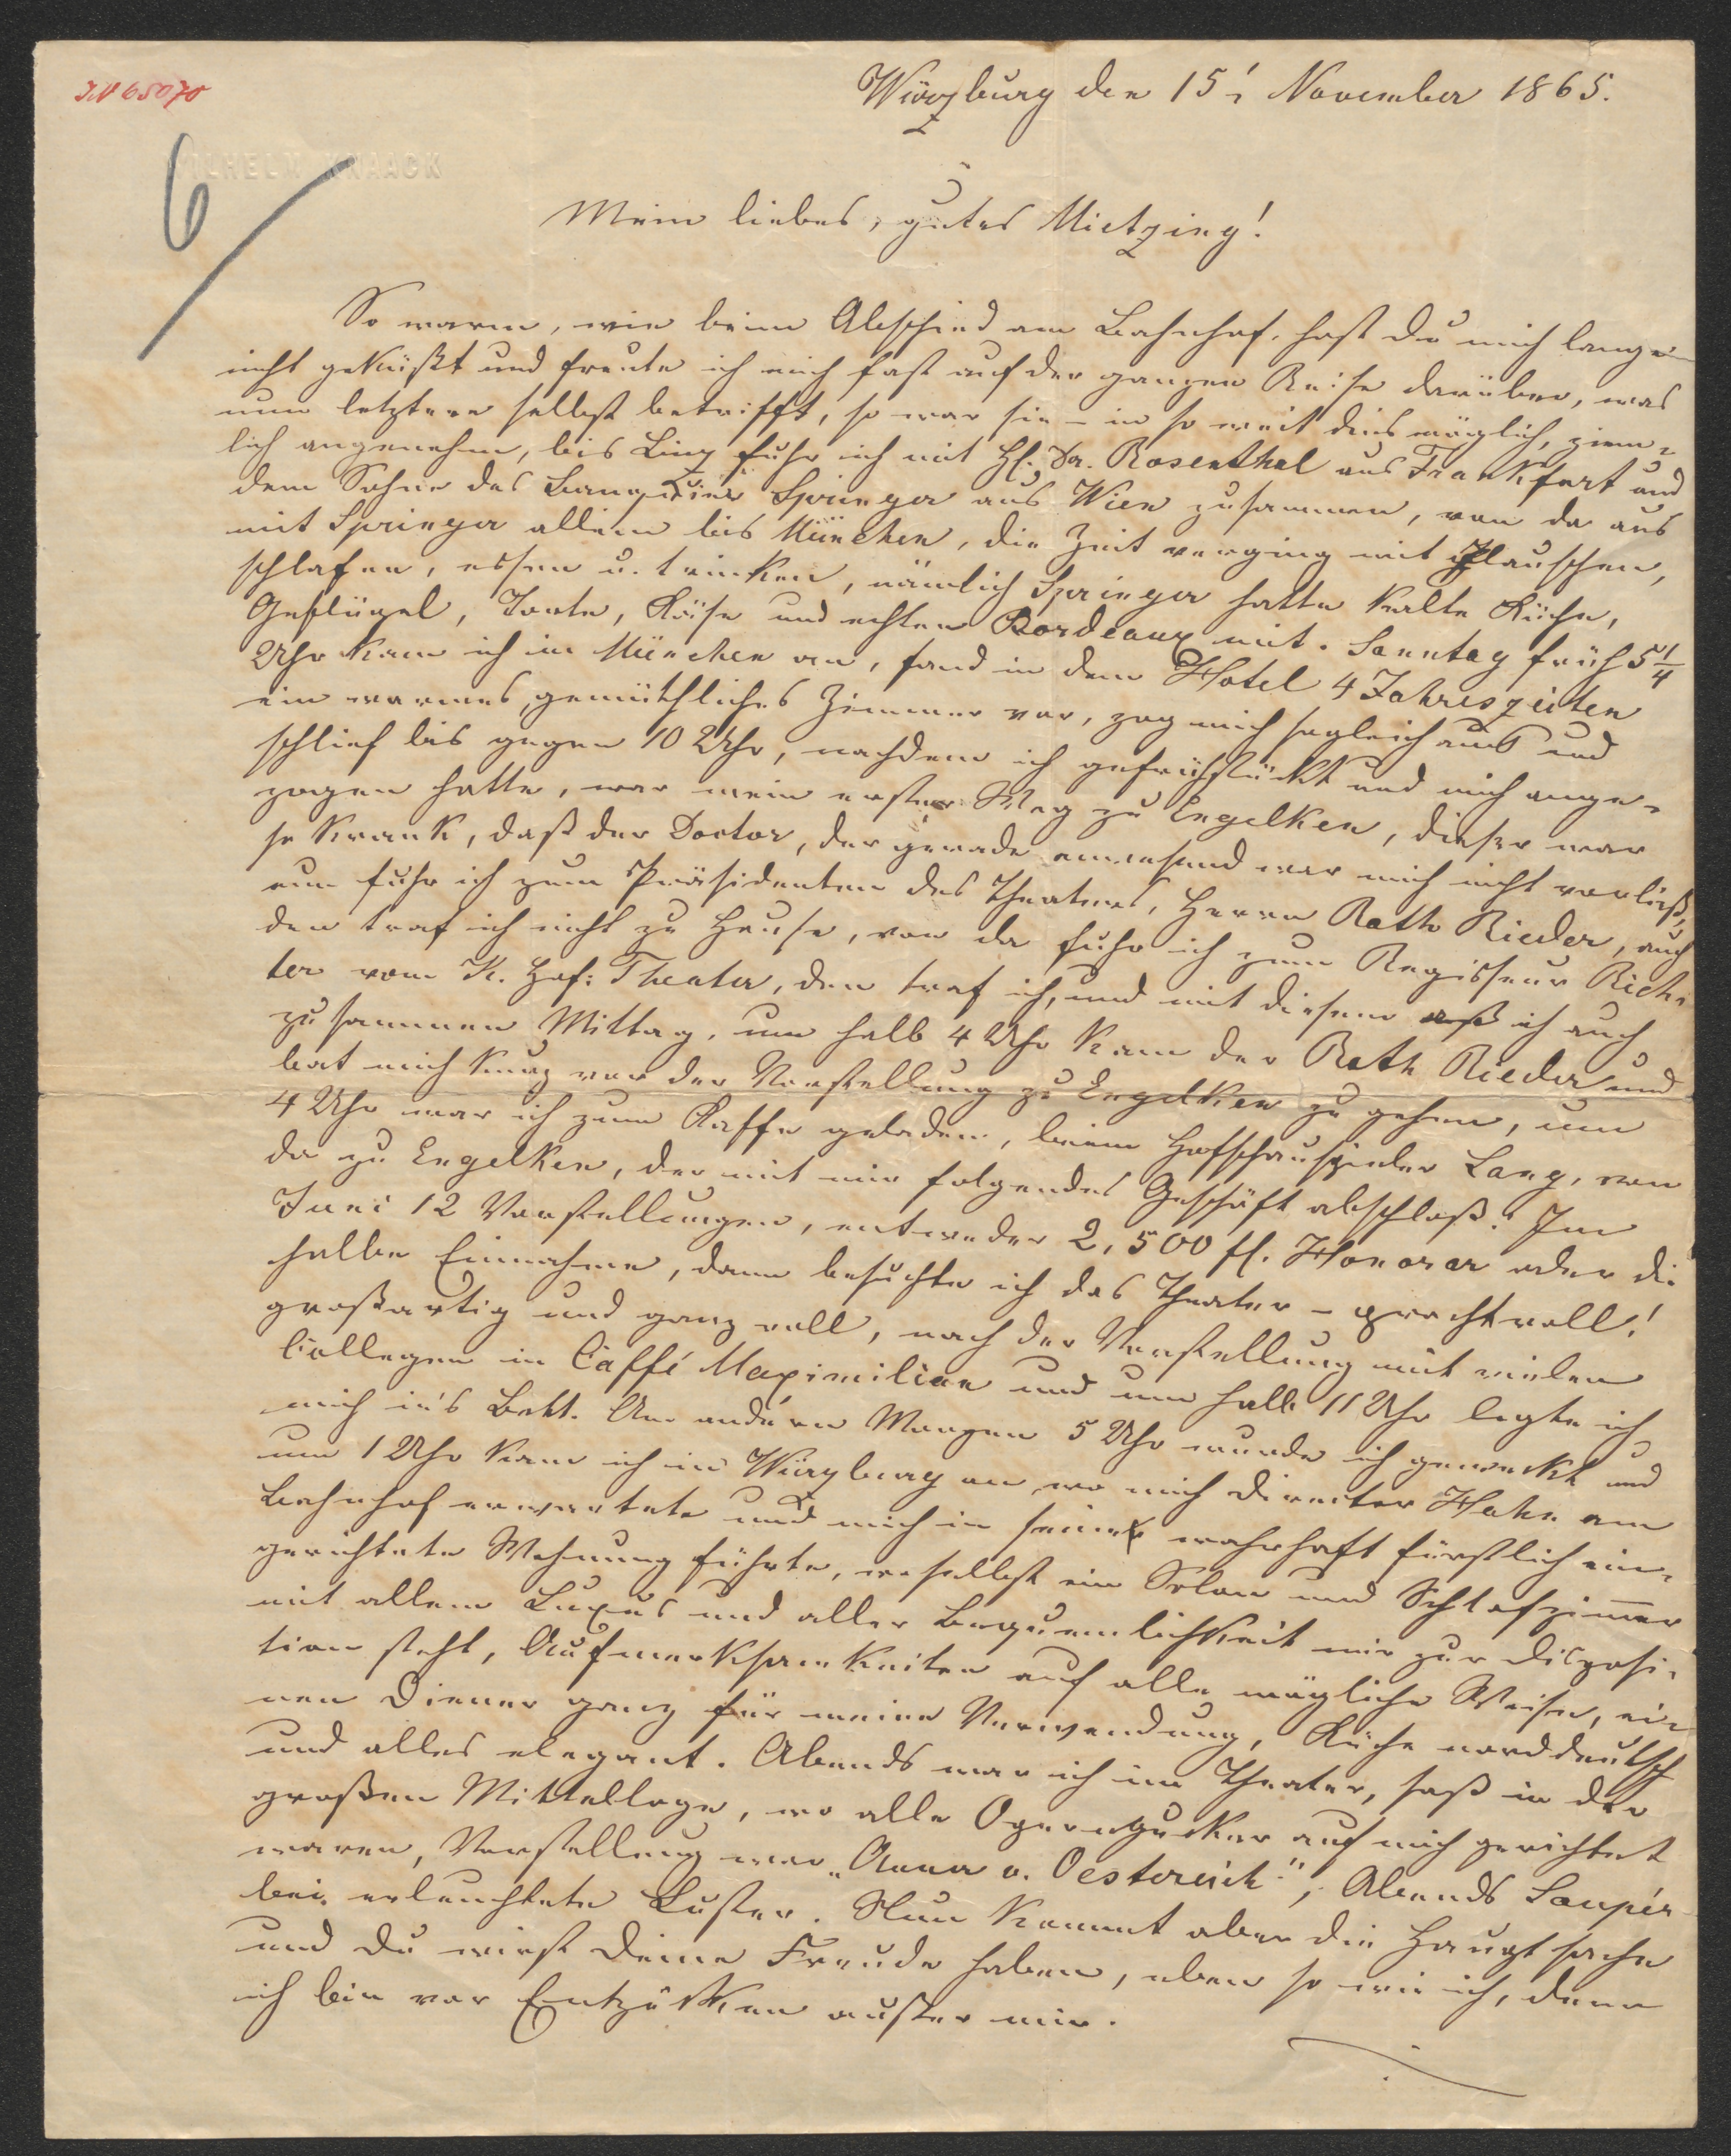 IN 65070
Würzburg den 15' November 1865.
6
WILHELM KNAACK
Mein liebes, gutes Mietzing!
So warm, wie beim Abschied am Bahnhof, hast du mich lange
nicht geküßt und freute ich mich fast auf der ganzen Reise darüber, was
nun letztere selbst betrifft, so war sie – in so weit dies möglich, ziem-
lich angenehm, bis Linz fuhr ich mit H. Dr. Rosenthal aus Frankfurt und
dem Sohne des Banquier Springer aus Wien zusammen, von da aus
mit Springer allein bis München, die Zeit verging mit Plauschen,
schlafen, essen u. trinken, nämlich Springer hatte kalte Küche,
Geflügel, Torte, Käse und echten Bordeaux mit. Sonntag früh 5 1/4
Uhr kam ich in München an, fand in dem Hotel 4 Jahreszeiten
ein warmes, gemüthliches Zimmer vor, zog mich sogleich aus und
schlief bis gegen 10 Uhr, nachdem ich gefrühstückt und mich ange-
zogen hatte, war mein erster Weg zu Engelken, dieser war
so krank, daß der Doctor, der gerade anwesend war mich nicht vorließ,
nun fuhr ich zum Präsidenten des Theaters, Herrn Rath Rieder, auch
den traf ich nicht zu Hause, von da fuhr ich zum Regisseur Rich-
ter vom K. Hof: Theater, den traf ich, und mit diesem aß ich auch
zusammen Mittag, um halb 4 Uhr kam der Rath Rieder und
bat mich kurz vor der Vorstellung zu Engelken zu gehen, um
4 Uhr war ich zum Kaffe geladen, beim Hofschauspieler Lang, von
da zu Engelken, der mit mir folgendes Geschäft abschloß: Im
Juni 12 Vorstellungen, entweder 2,500 fl. Honorar oder die
halbe Einnahme, dann besuchte ich das Theater – prachtvoll!
großartig und ganz voll, nach der Vorstellung mit vielen
Collegen in Caffé Maximilian und um halb 11 Uhr legte ich
mich in's Bett. Am andern Morgen 5 Uhr wurde ich geweckt und
um 1 Uhr kam ich in Würzburg an, wo mich Director Hahn am
Bahnhof erwartete und mich in seine wahrhaft fürstlich ein-
gerichtete Wohnung führte, woselbst ein Salon und Schlafzimmer
mit allem Luxus und aller Bequemlichkeit mir zur Disposi-
tion steht, Aufmerksamkeiten auf alle mögliche Weise, ei-
nen Diener ganz für meine Verwendung, Küche norddeutsch
und alles elegant. Abends war ich im Theater, saß in der
großen Mittelloge, wo alle Operngucker auf mich gerichtet
waren, Vorstellung war „Anna v. Oesterreich", Abends Soupér
bei erleuchtete Luster. Nun kommt aber die Hauptsache
und du wirst deine Freude haben, eben so wie ich, denn
ich bin vor Entzükken außer mir.